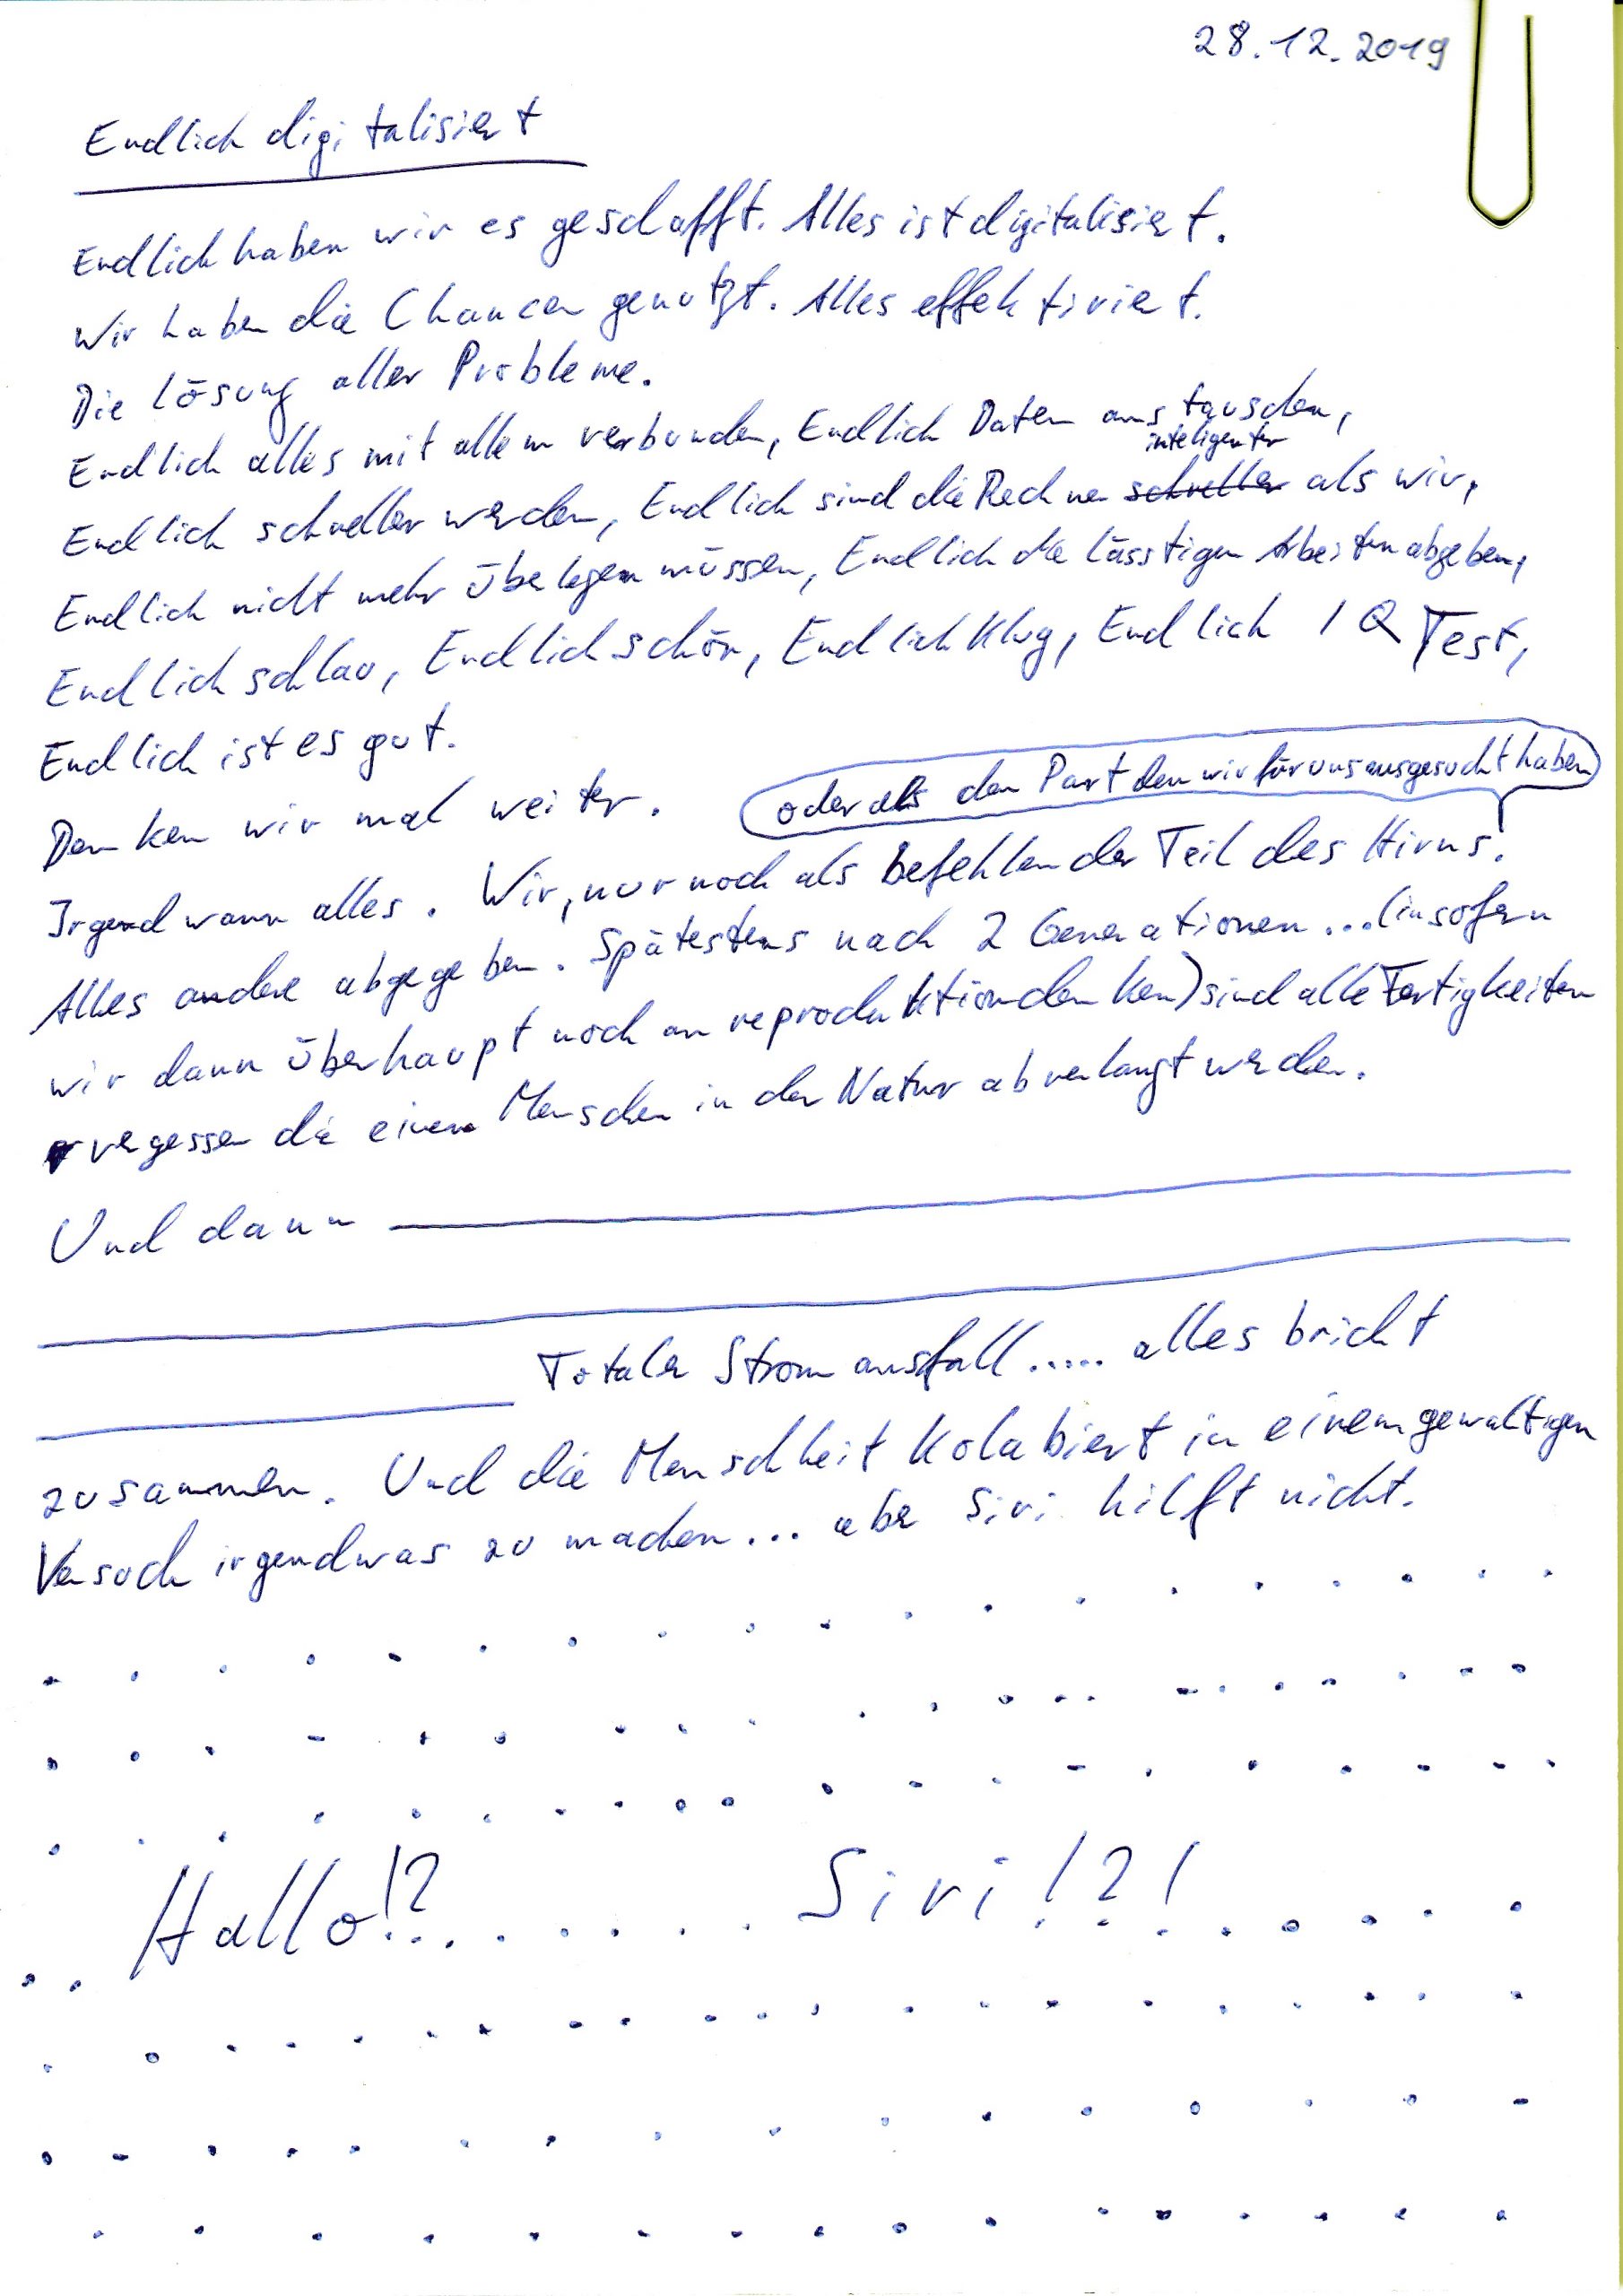 28.12.2019
Endlich digitalisiert
Endlich haben wir es geschafft. Alles ist digitalisiert.
Wir haben die Chancen genutzt. Alles effektiviert.
Die Lösung aller Probleme.
Endlich alles mit allem verbunden, Endlich Daten austauschen,
inteligenter
Endlich schneller werden, Endlich sind die Rechner schneller als wir,
Endlich nicht mehr überlegen müssen, Endlich die lässtigen Arbeiten abgeben,
Endlich schlau, Endlich schön, Endlich Klug, Endlich IQ Test,
Endlich ist es gut.
Denken wir mal weiter.
oder als den Part den wir für uns ausgesucht haben
Irgendwann alles. Wir, nur noch als befehlender Teil des Hirns.
Alles andere abgegeben. Spätestens nach 2 Generationen...(insofern
wir dann überhaupt noch an reproduktion denken) sind alle Fertigkeiten
vergessen die einem Menschen in der Natur abverlangt werden.
Und dann
Totaler Stromausfall..... alles bricht
zusammen. Und die Menschheit kolabiert in einem gewaltigen
Versuch irgendwas zu machen... aber Siri hilft nicht.
. . . . . . . . . . . . . . . . . .
. . . . . . . . . . . . . . . . . . . . .
. . . . . . . . . . . . . . . . . . . .
. . Hallo!? . . . . . . Siri!?! . . . . .
. . . . . . . . . . . . . . . . . . .
. . . . . . . . . . . . . . .
. . . . . . . . . . . . . . .